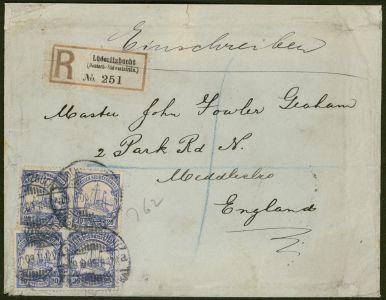 Einschreiben
R
Lüderitzbucht
(Deutsch-Südwestafrika.)
No. 251
Master John Fowler Graham
2 Park Rd N.
Middlesbro
England
762